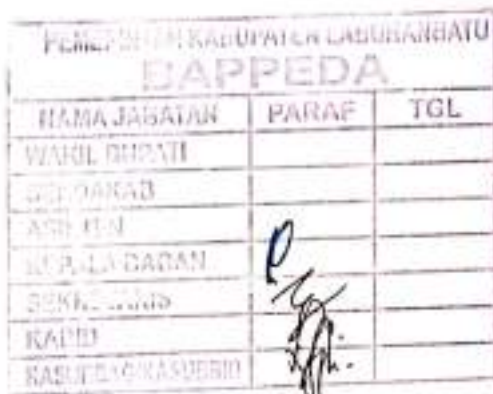 PEMERINTAH KABUPATEN LABUHANBATU
BAPPEDA
NAMA JABATAN PARAF TGL
WAKIL BUPATI
SEKDAKAB
ASISTEN
KEPALA BADAN
SEKRETARIS
KABID
KASUBBAG/KASUBBID